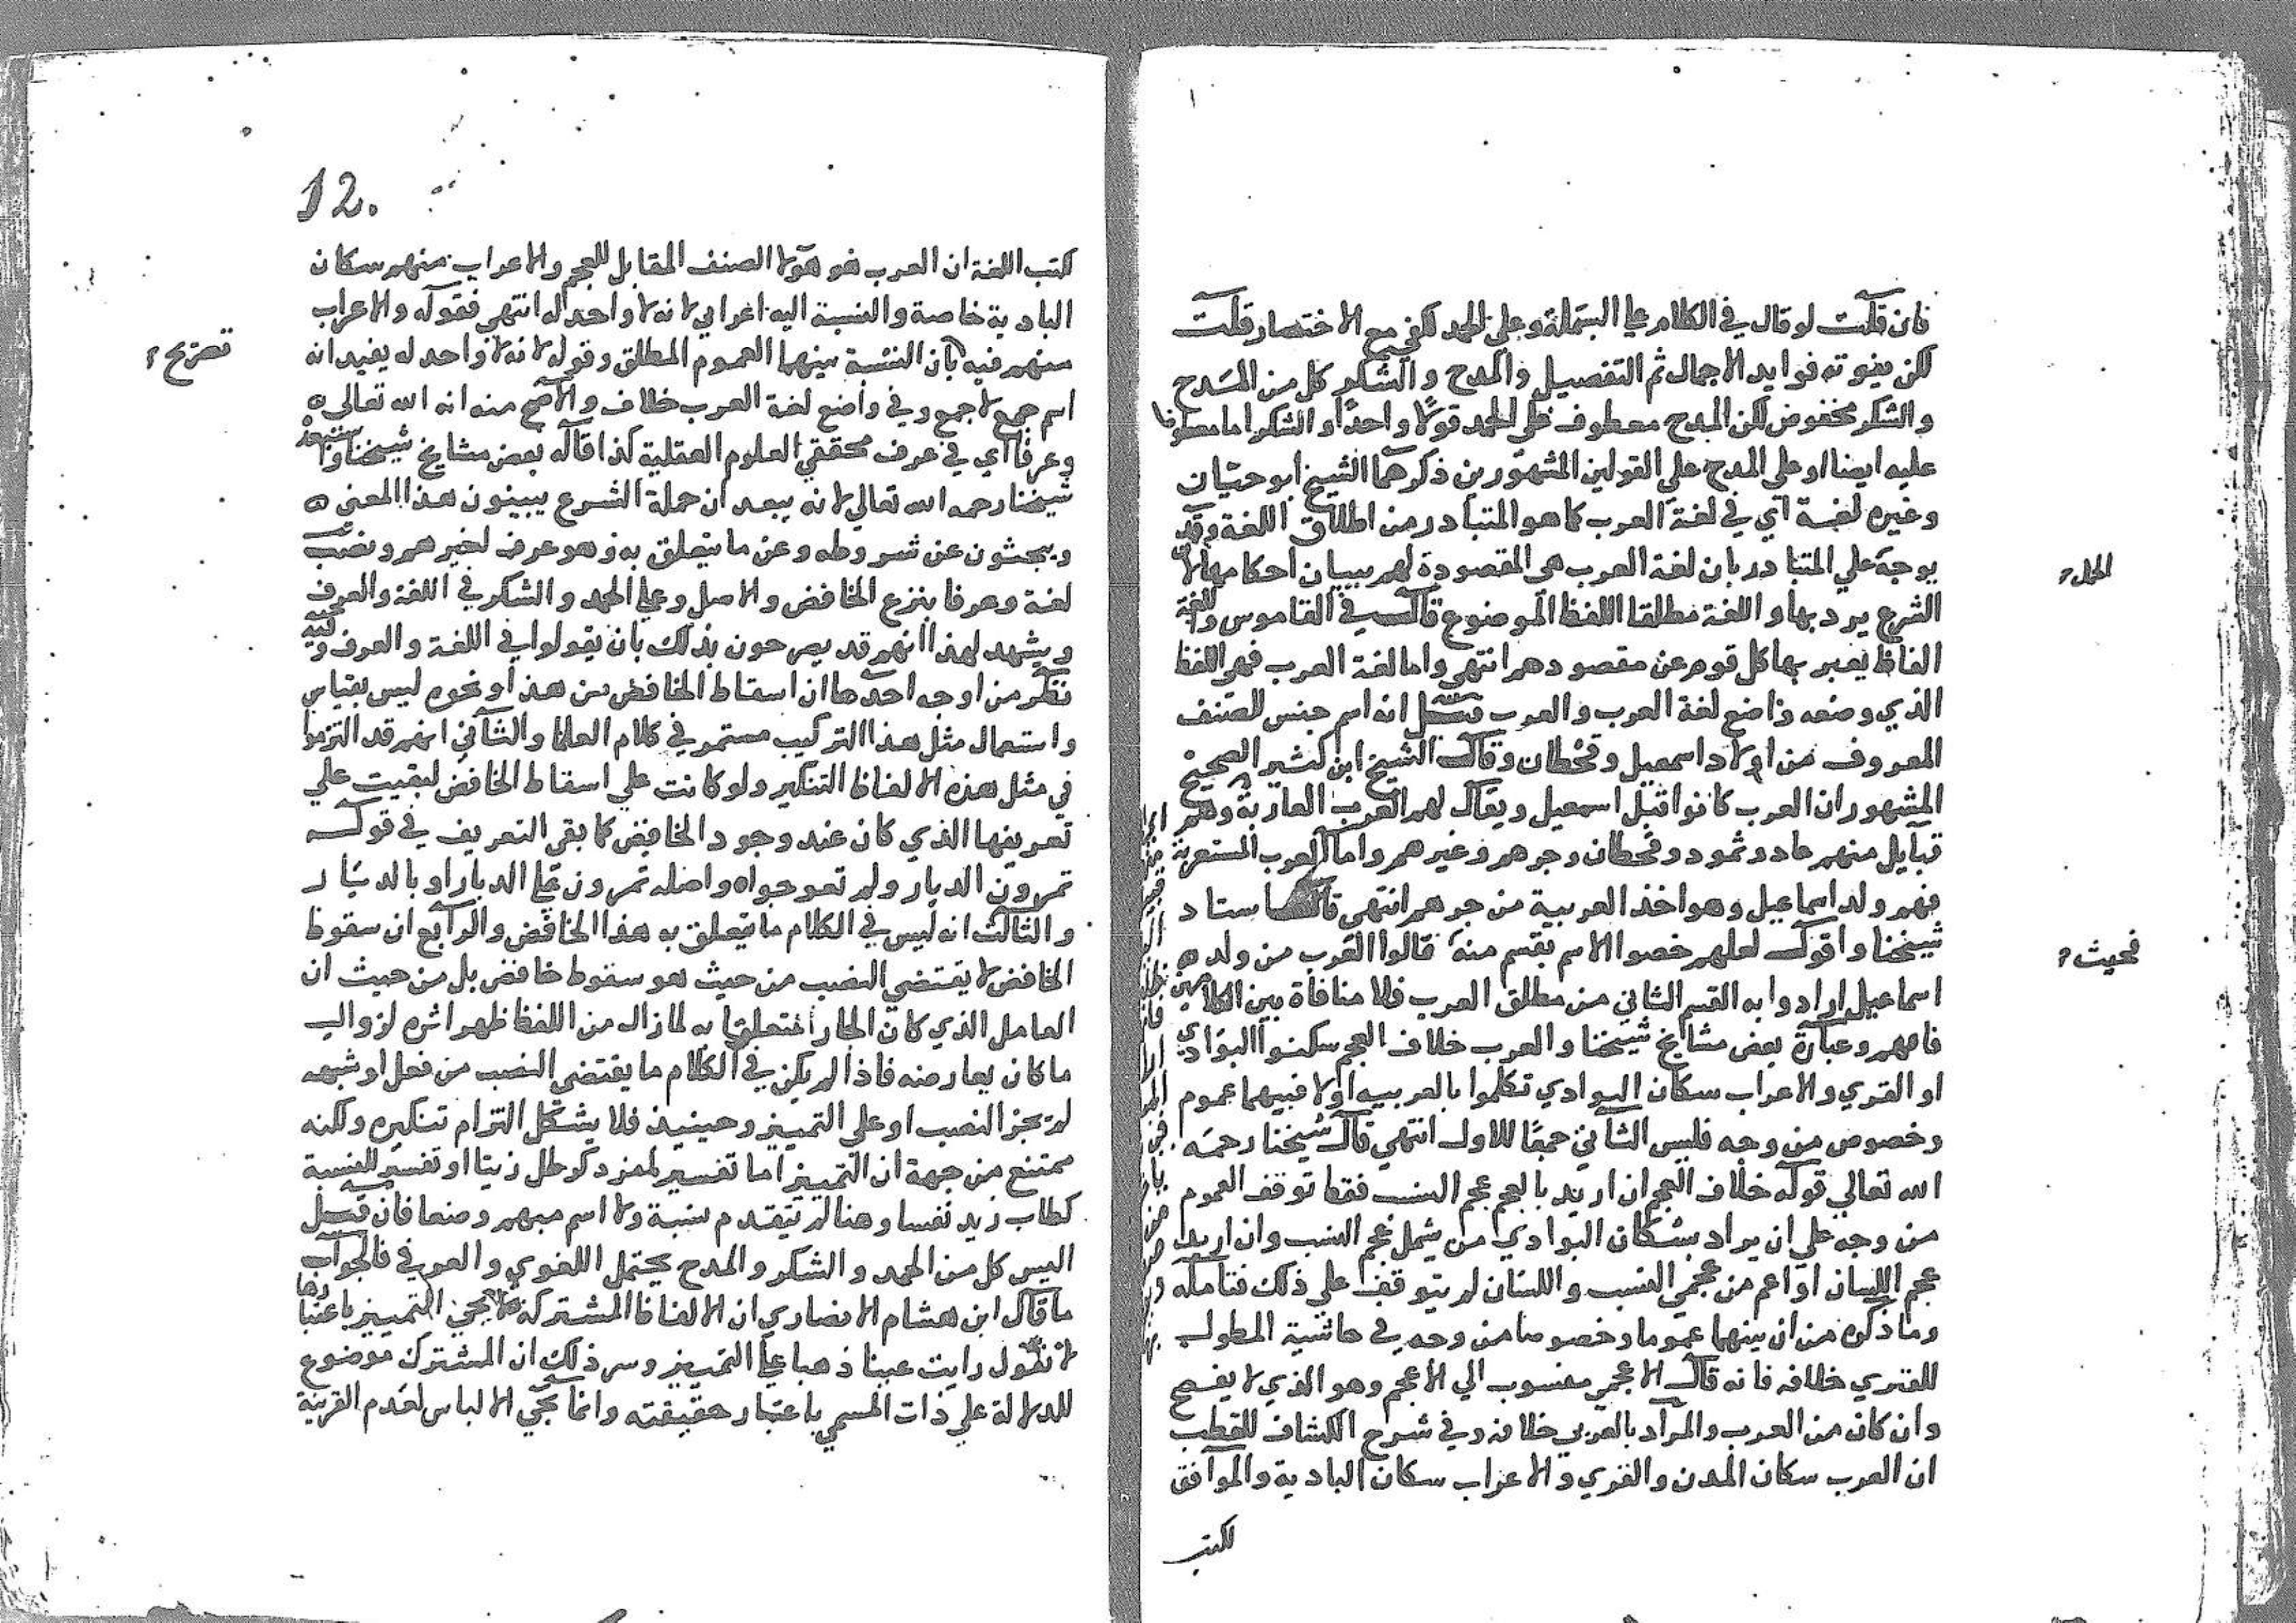 فان قلت لو قال في الكلام علي البسملة وعلي الحمد لكفي مع الاختصار قلت
لكن يفوته فوايد الاجمال ثم التفصيل والمدح والشكر كل من المدح
والشكر مخفوض لكن المدح معطوف علي الحمد قولا واحدا والشكر اما معطوفا
عليه ايضا او علي المدح علي القولين المشهورين ذكرهما الشيخ ابو حيان
وغيره لغة اي في لغة العرب كما هو المتبادر من اطلاق اللغة وقد
يوجه علي المتبادر بان لغة العرب هي المقصودة لهم ببيان احكامها لان
الشرع يرد بها واللغة مطلقا اللفظ الموضوع قال في القاموس واللغة
الفاظ يعبر بها كل قوم عن مقصودهم انتهي واما لغة العرب فهي اللفظ
الذي وضعه واضع لغة العرب والعرب قيل انه اسم جنس للصنف
المعروف من اولاد اسمعيل وقحطان وقال الشيخ ابن كثير الصحيح
المشهور ان العرب كانوا قبل اسمعيل ويقال لهم العرب العاربة وهم
قبايل منهم عاد وثمود وقحطان وجرهم وغيرهم واما العرب المستعربة
فهم ولد اسماعيل وهو اخذ العربية من جرهم انتهي قال استاد
شيخنا واقول لعلهم خصوا الاسم بقسم منه قالوا العرب من ولد
اسماعيل ارادوا به القسم الثاني من مطلق العرب فلا منافاة بين الكلامين
فافهم وعبارة بعض مشايخ شيخنا والعرب خلاف العجم سكنوا البوادي
او القري والاعراب سكان البوادي تكلموا بالعربيه اولا فبينهما عموم
وخصوص من وجه فليس الثاني جمعا للاول انتهي قال شيخنا رحمه
الله تعالي قوله خلاف العجم ان اريد بالعجم عجم النسب فقط توقف العموم
من وجه علي ان يراد بسكان البوادي من يشمل عجم النسب وان اريد
عجم اللسان او اعم من عجمي النسب واللسان لم يتوقف علي ذلك فتامله
وما ذكره من ان بينهما عموما وخصوصا من وجه في حاشية المطول
للفنري خلافه فانه قال الاعجمي منسوب الي الاعجم وهو الذي لا يفصح
وان كان من العرب والمراد بالعربي خلافه وفي شرح الكشاف للقطب
ان العرب سكان المدن والقري والاعراب سكان البادية والموافق
لكتب
فحيث
12.
كتب اللغة ان العرب هو هؤلا الصنف المقابل للعجم والاعراب منهم سكان
البادية خاصة والنسبة اليه اعرابي لانه لا واحد له انتهي فقوله والاعراب
منهم فيه بان النسبة بينهما العموم المطلق وقوله لانه لا واحد له يفيد انه
اسم جمع لا جمع وفي واضع لغة العرب خلاف والاصح منه انه الله تعالي
وعرفا اي في عرف محققي العلوم العقلية كذا قاله بعض مشايخ شيخنا
شيخنا رحمه الله تعالي لانه يبعد ان حملة الشرع يبينون هذا المعني
ويبحثون عن شروطه وعن ما يتعلق به وهو عرف لغيرهم ونصب
لغة وعرفا بنزع الخافض والاصل وعلي الحمد والشكر في اللغة والعرف
ويشهد لهذا انهم قد يصرحون بذلك بان يقولوا في اللغة والعرف وفيه
نظر من اوجه احدها ان اسقاط الخافض من هذا ونحوه ليس بقياس
واستعمال مثل هذا التركيب مستمر في كلام العلما والثاني انهم قد التزموا
في مثل هذه الالفاظ التنكير ولو كانت علي اسقاط الخافض لبقيت علي
تعريفها الذي كان عند وجود الخافض كما بقي التعريف في قوله
تمرون الديار ولم تعوجوا واصله تمرون علي الديار او بالديار
والثالث انه ليس في الكلام ما يتعلق به هذا الخافض والرابع ان سقوط
الخافض لا يقتضي النصب من حيث هو سقوط خافض بل من حيث ان
العامل الذي كان الجار متعلقا به لما زال من اللفظ ظهر اثره لزوال
ما كان يعارضه فاذا لم يكن في الكلام ما يقتضي النصب من فعل او شبهه
لم يجز النصب او علي التمييز وحينيذ فلا يشكل التزام تنكيره ولكنه
ممتنع من جهة ان التمييز اما تفسير لمفرد كرطل زيتا او تفسير لنسبة
كطاب زيد نفسا وهنا لم يتقدم نسبة ولا اسم مبهم وضعا فان قيل
اليس كل من الحمد والشكر والمدح يحتمل اللغوي والعرفي فالجواب
ما قال ابن هشام الانصاري ان الالفاظ المشتركة لا يجي التمييز باعتبارها
لا تقول رايت عينا ذهبا علي التمييز وسر ذلك ان المشترك موضوع
للدلالة علي ذات المسمي باعتبار حقيقته وانما يجي الالباس لعدم القرينة